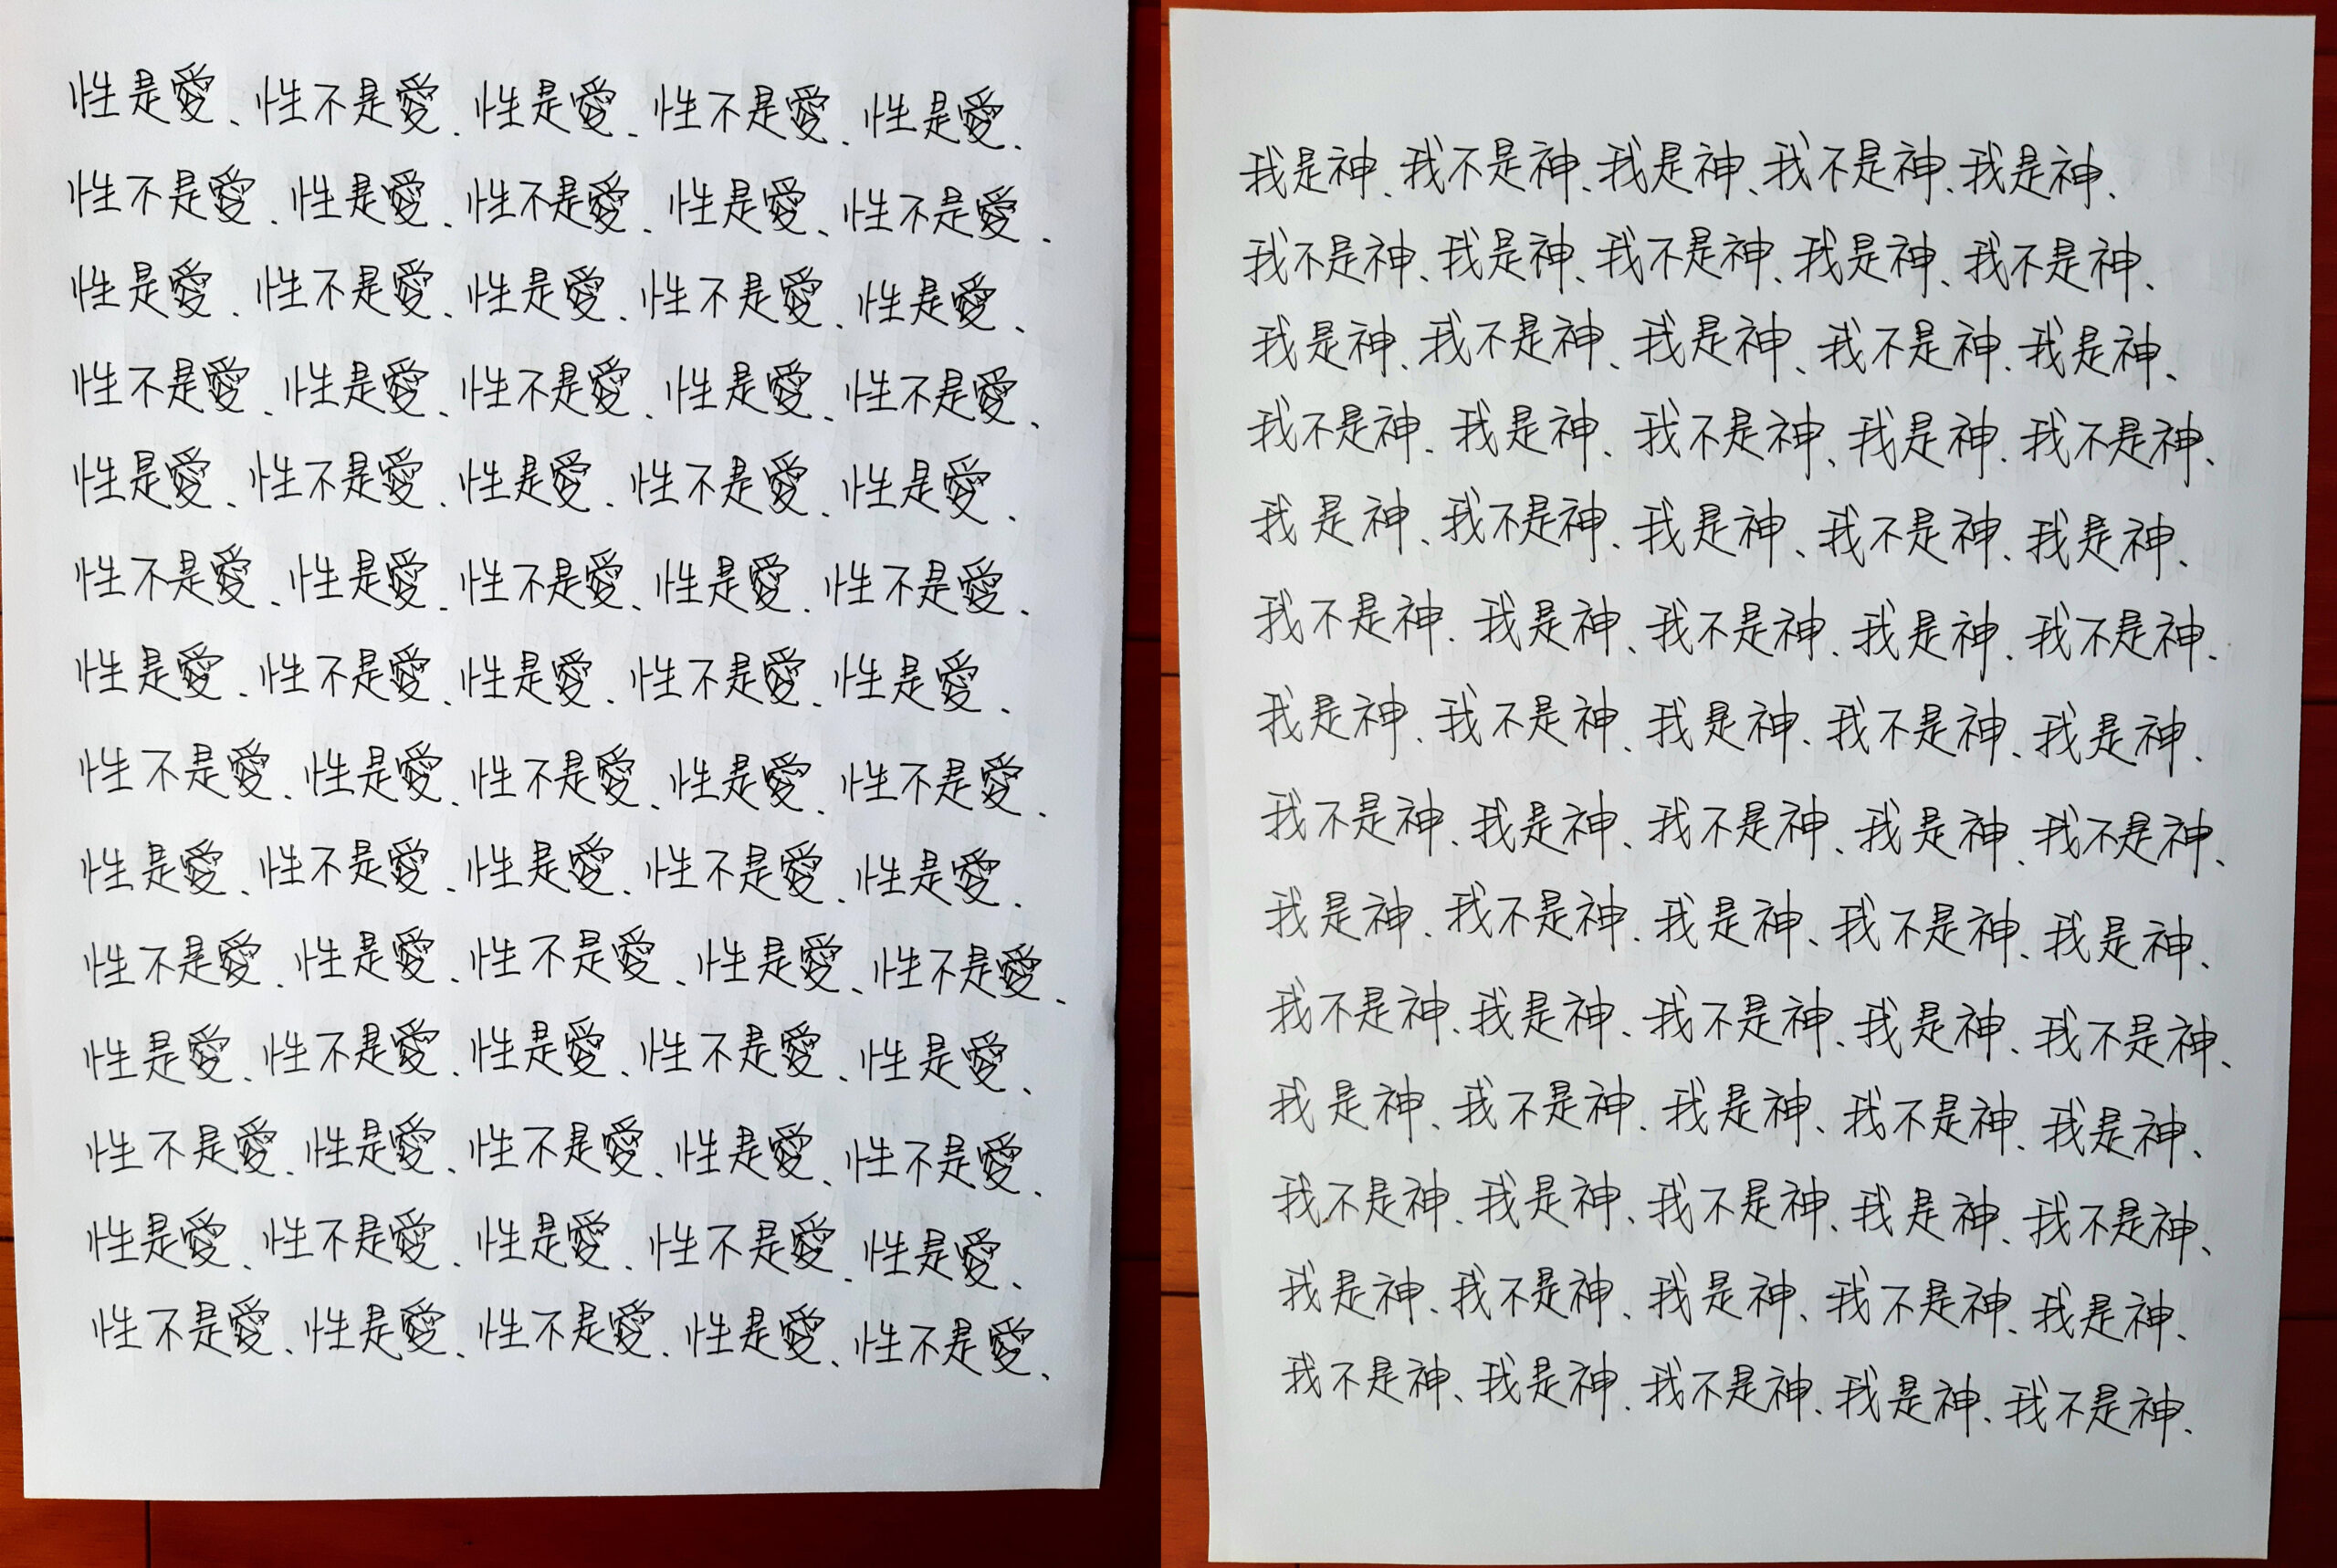 性是愛、性不是愛、性是愛、性不是愛、性是愛、
性不是愛、性是愛、性不是愛、性是愛、性不是愛、
性是愛、性不是愛、性是愛、性不是愛、性是愛、
性不是愛、性是愛、性不是愛、性是愛、性不是愛、
性是愛、性不是愛、性是愛、性不是愛、性是愛、
性不是愛、性是愛、性不是愛、性是愛、性不是愛、
性是愛、性不是愛、性是愛、性不是愛、性是愛、
性不是愛、性是愛、性不是愛、性是愛、性不是愛、
性是愛、性不是愛、性是愛、性不是愛、性是愛、
性不是愛、性是愛、性不是愛、性是愛、性不是愛、
性是愛、性不是愛、性是愛、性不是愛、性是愛、
性不是愛、性是愛、性不是愛、性是愛、性不是愛、
性是愛、性不是愛、性是愛、性不是愛、性是愛、
性不是愛、性是愛、性不是愛、性是愛、性不是愛、
我是神、我不是神、我是神、我不是神、我是神、
我不是神、我是神、我不是神、我是神、我不是神、
我是神、我不是神、我是神、我不是神、我是神、
我不是神、我是神、我不是神、我是神、我不是神、
我是神、我不是神、我是神、我不是神、我是神、
我不是神、我是神、我不是神、我是神、我不是神、
我是神、我不是神、我是神、我不是神、我是神、
我不是神、我是神、我不是神、我是神、我不是神、
我是神、我不是神、我是神、我不是神、我是神、
我不是神、我是神、我不是神、我是神、我不是神、
我是神、我不是神、我是神、我不是神、我是神、
我不是神、我是神、我不是神、我是神、我不是神、
我是神、我不是神、我是神、我不是神、我是神、
我不是神、我是神、我不是神、我是神、我不是神、